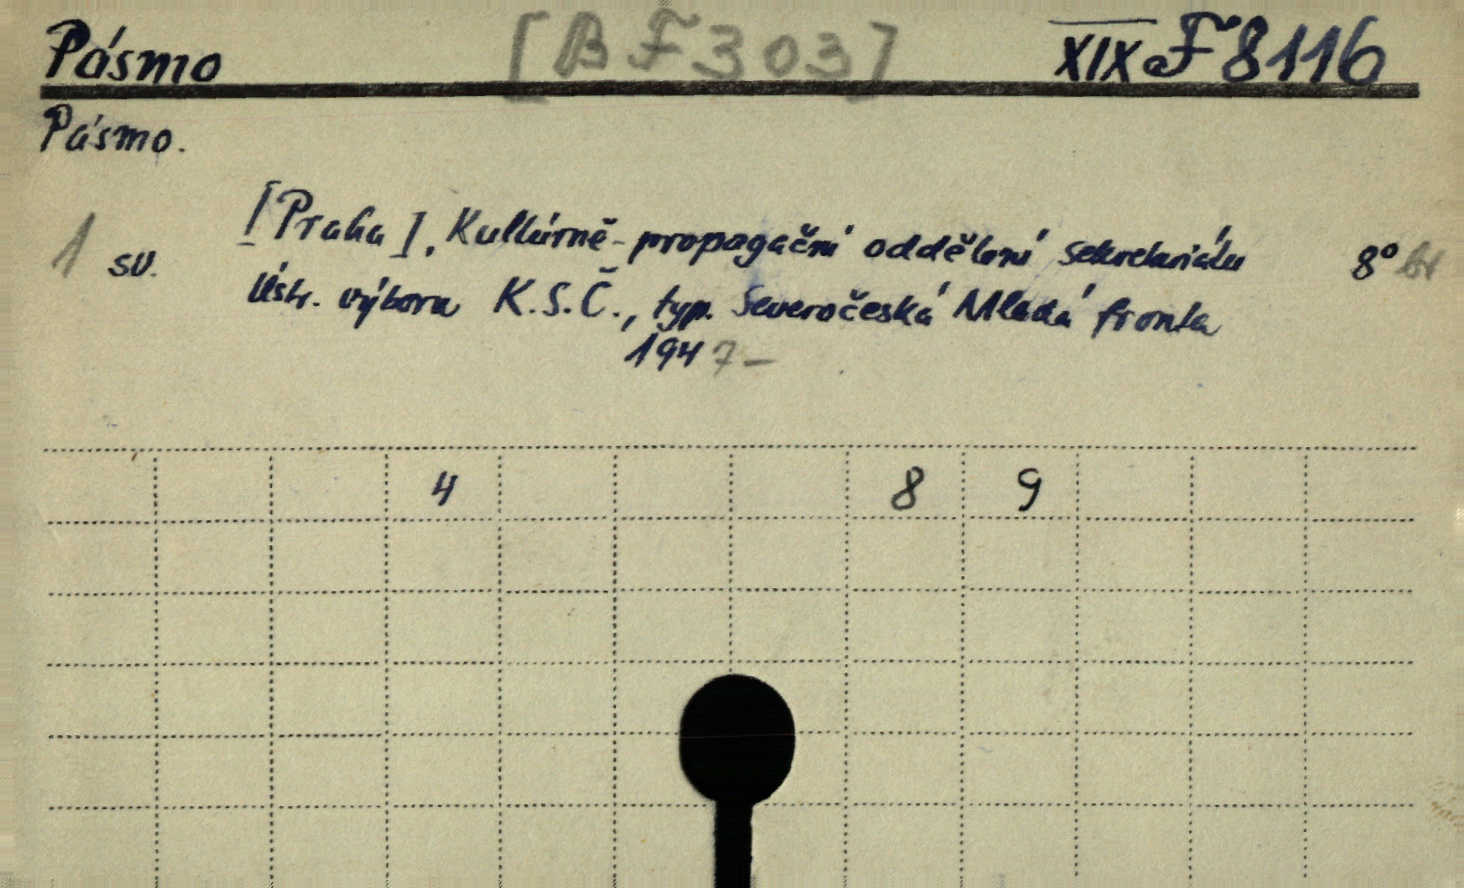 Pásmo [BF303] XIX F 8116
Pásmo.
[Praha], Kulturně-propagační oddělení sekretariátu
1 sv. 8° br
Ústr. výboru K.S.Č., typ. Severočeská Mladá fronta
1947-
4 8 9